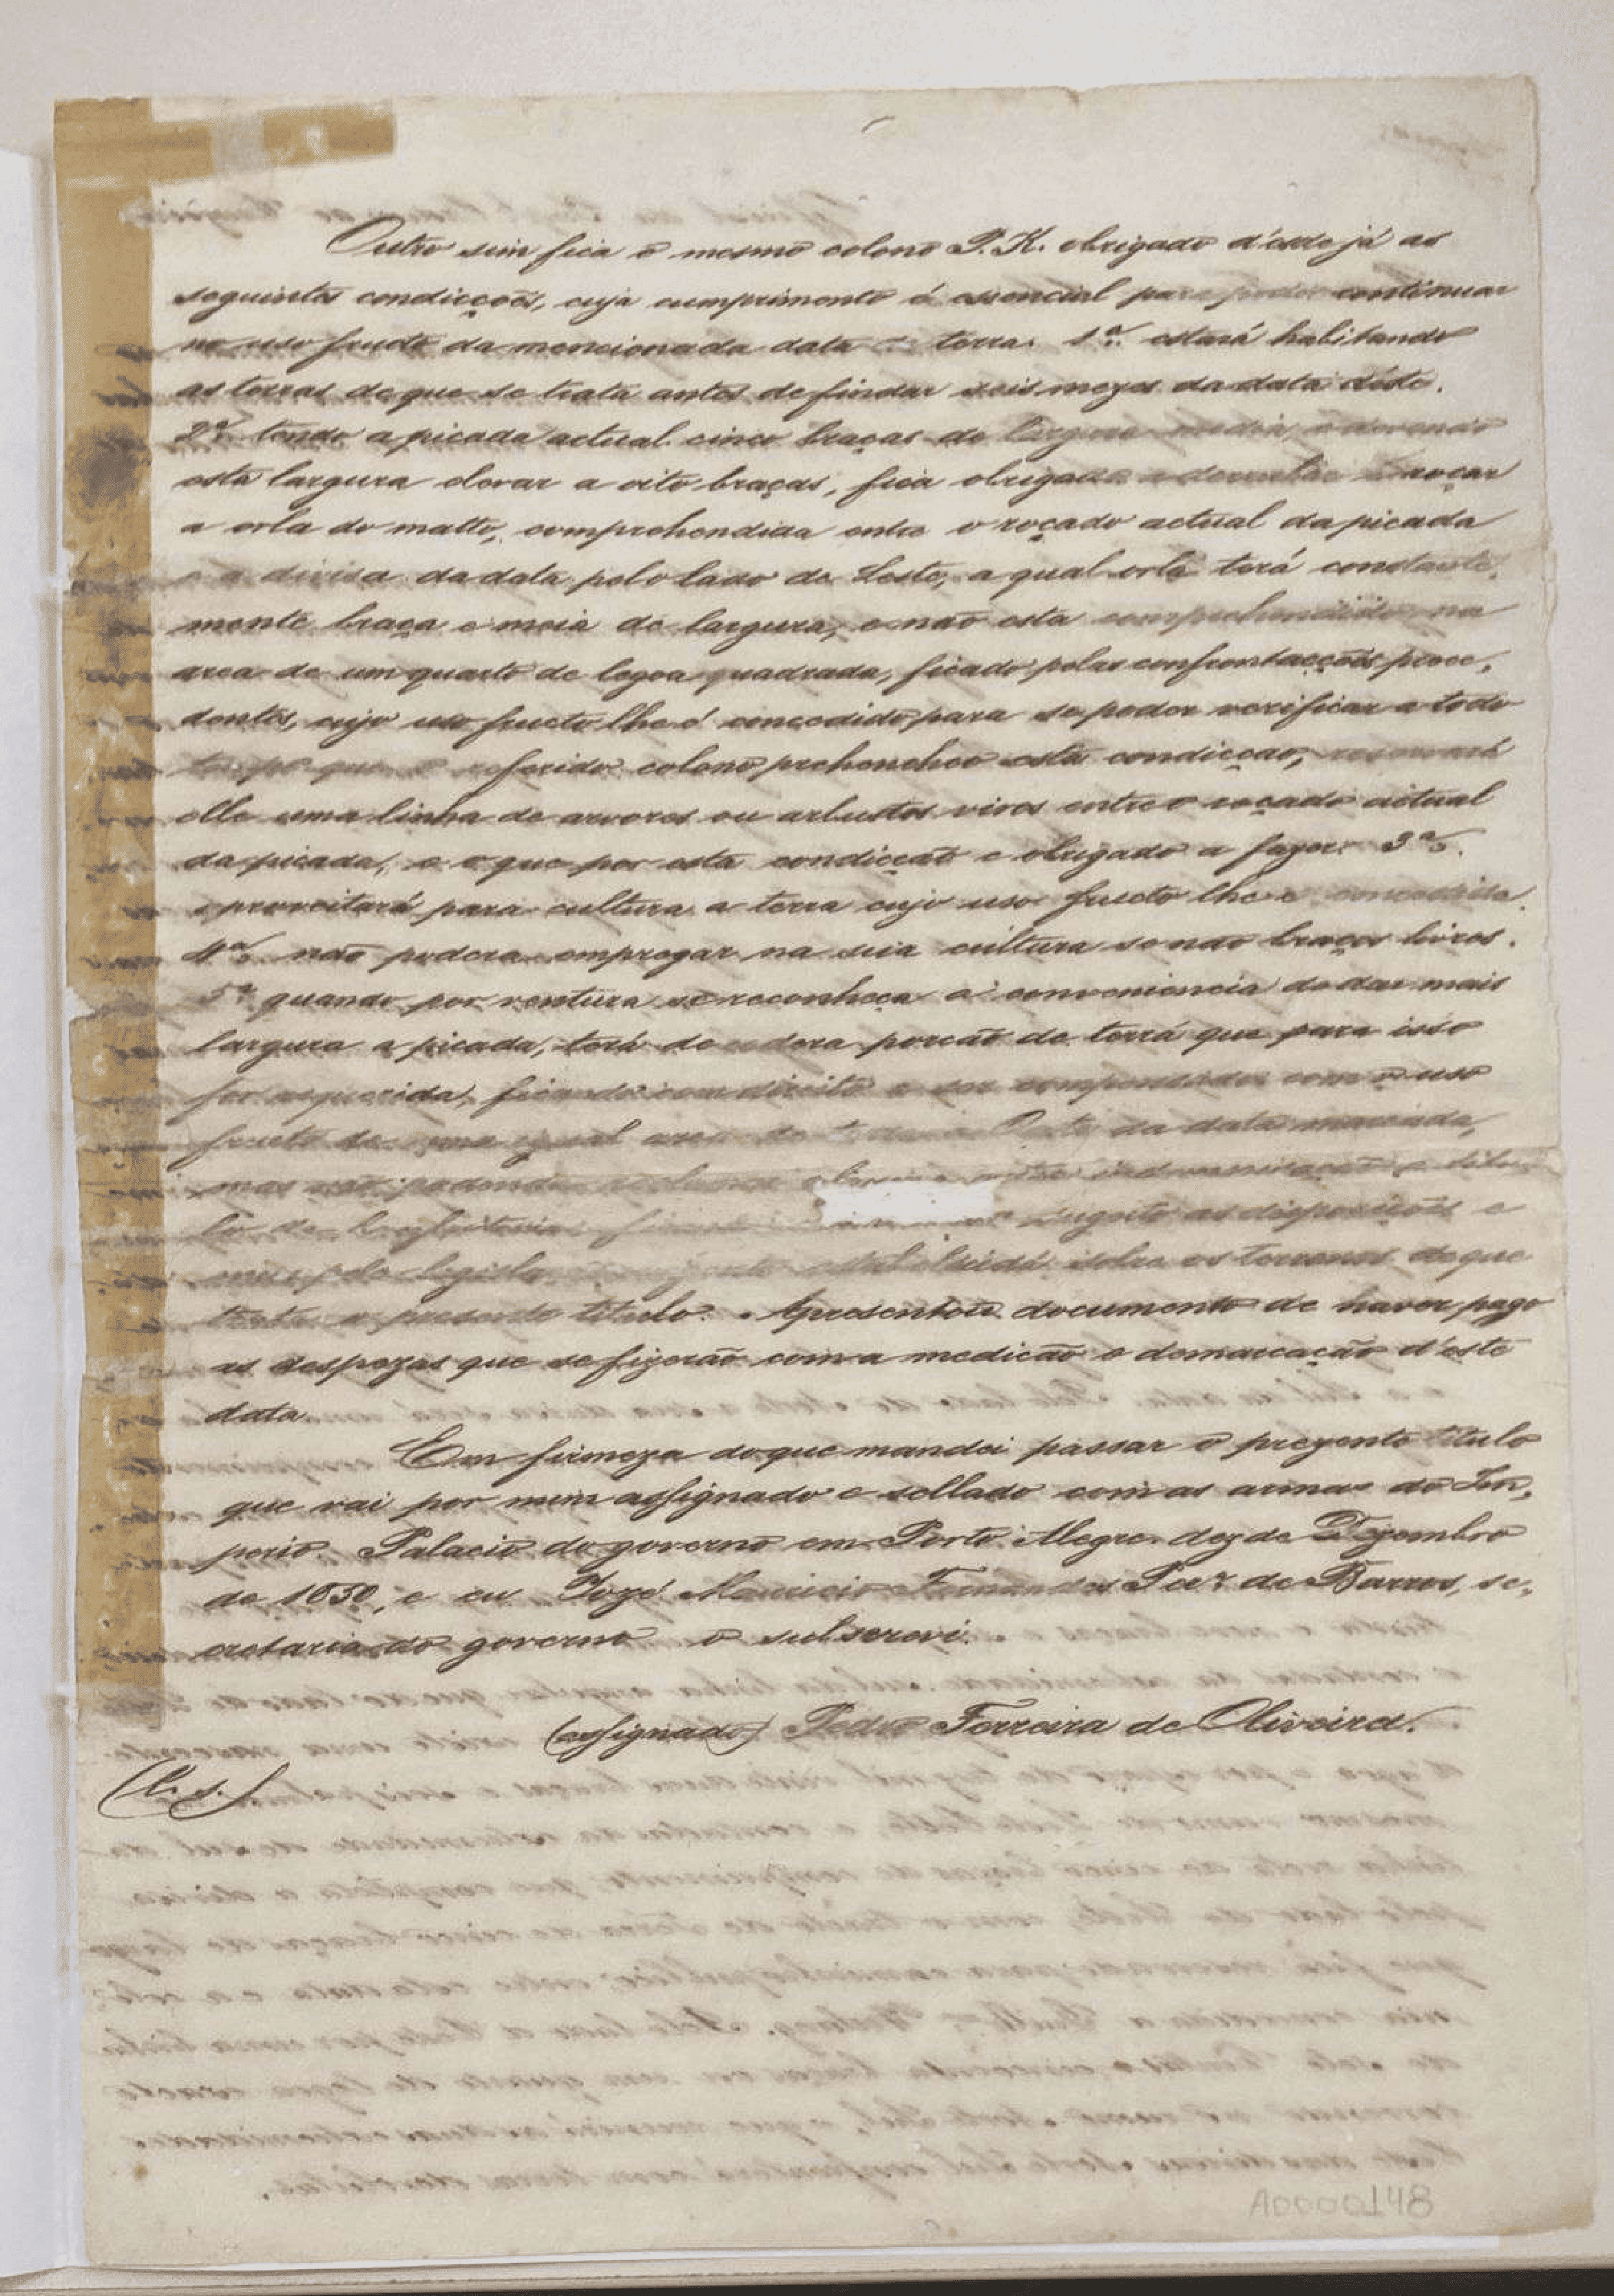 Outro sim fica o mesmo colono P. K. obrigado d'esde já as
seguintes condicções, cuja cumprimento é essencial para poder continuar
no uso fructo da mencionada data terra. 1ª estará habitando
as terras de que se trata antes de findar seis mezes da data déste.
2ª tendo a picada actual cinco braças de largura media, e devendo
esta largura elevar a oito braças, fica obrigado a derrubar roçar
a orla do matto, comprehendida entre o roçado actual da picada
e a divisa da data pelo lado de Leste, a qual orla terá constante,
mente braça e meia de largura, e não esta comprehendido na
area de um quarto de legoa quadrada, ficado pelas confrontacções prece,
dentes, cujo uso fructo lhe é concedido, para se poder verificar a todo
tempo que o referido colono prehencheo esta condicção, reservará
elle uma linha de arvores ou arbustos vivos entre o roçado actual
da picada, e o que por esta condicção e obrigado a fazer. 3ª
aproveitará para cultura a terra cujo uso fructo lhe e concedido.
4ª não podera empregar na sua cultura se não braços livres.
5ª quando por ventura se reconheça a conveniencia de dar mais
largura a picada, terá de cedera porcão de terrá que para isso
for requerida, ficando com direito a ser compensado com o uso
fructo de uma igual area da data marcada,
mas não podendo indemnisação
de sugeito as disposições e
pela estabelecida sobre os terrenos de que
trata o presente titulo. Apresentou documento de haver pago
as despezas que se fizerão com a medicão e demarcação d'este
data
Em firmeza do que mandei passar o prezente titulo
que vai por mim assignado e sellado com as armas do Im,
perio. Palacio do governo em Porto Alegre dez de Dezembro
de 1850, e eu Jozé Mauricio Fernandes Per.ª de Barros, se,
cretario do governo o subscrevi.
(assignado) Pedro Ferreira de Oliveira.
(L. S.)
A0000148